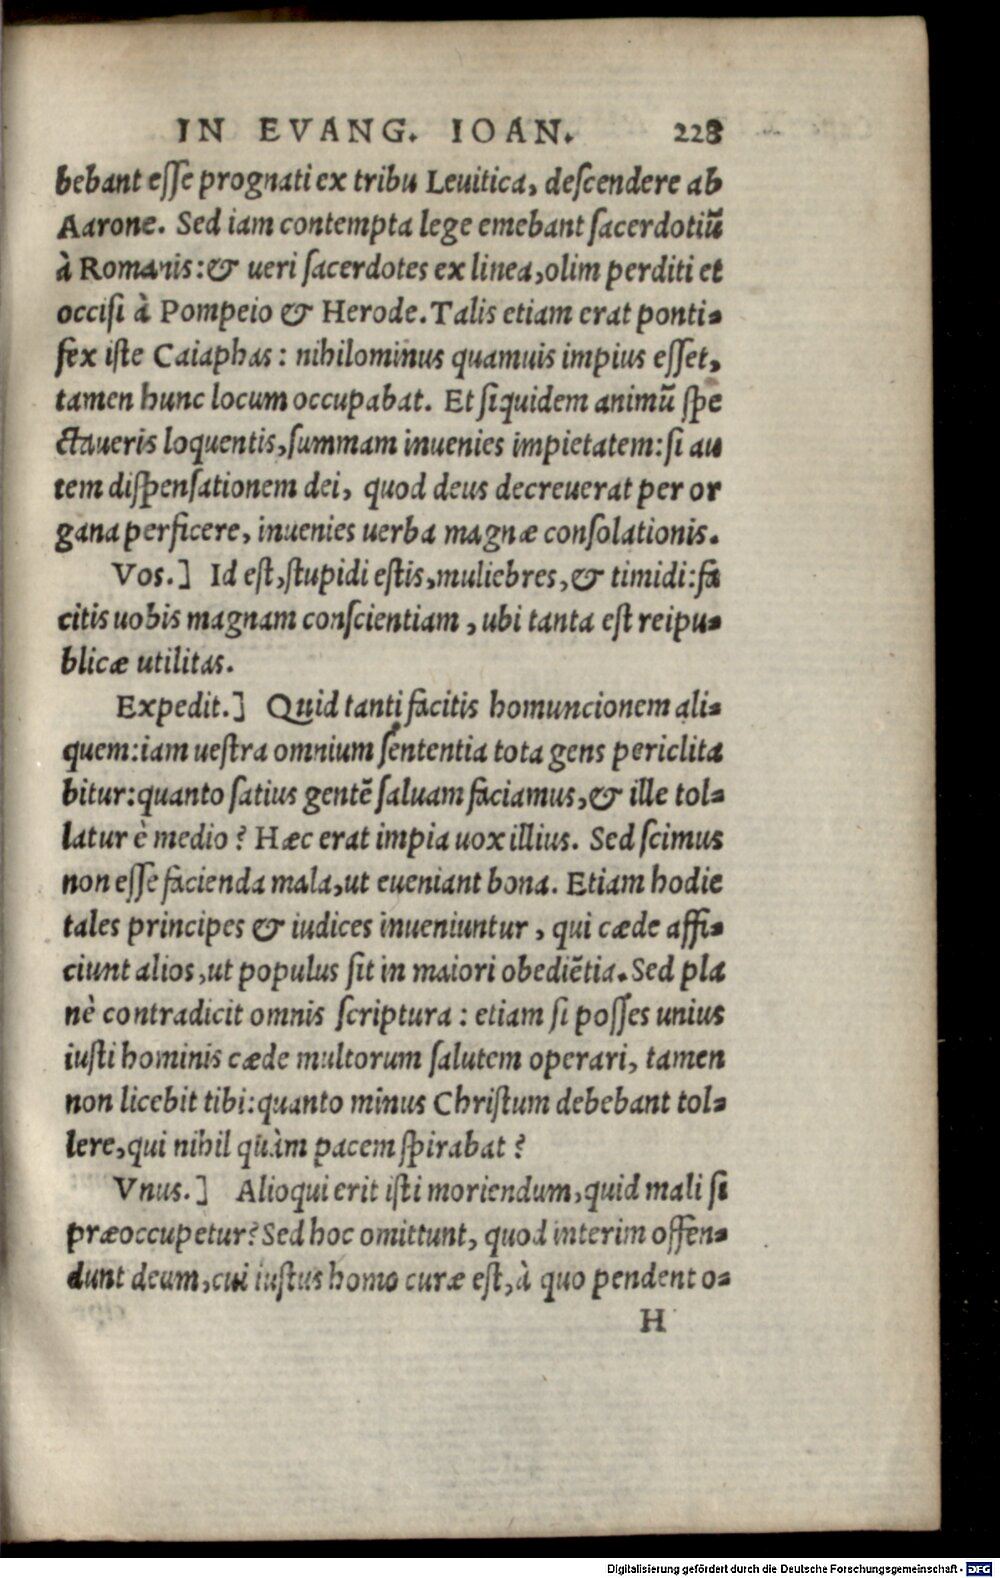 IN EVANG. IOAN. 228
bebant esse prognati ex tribu Leuitica, descendere ab
Aarone. Sed iam contempta lege emebant sacerdotiũ
à Romanis: & ueri sacerdotes ex linea, olim perditi et
occisi à Pompeio & Herode. Talis etiam erat ponti-
fex iste Caiaphas: nihilominus quamuis impius esset,
tamen hunc locum occupabat. Et siquidem animũ spe
ctaueris loquentis, summam inuenies impietatem: si au
tem dispensationem dei, quod deus decreuerat per or
gana perficere, inuenies uerba magnæ consolationis.
Vos.] Id est, stupidi estis, muliebres, & timidi: fa
citis uobis magnam conscientiam, ubi tanta est reipu-
blicæ utilitas.
Expedit.] Quid tanti facitis homuncionem ali-
quem: iam uestra omnium sententia tota gens periclita
bitur: quanto satius gentẽ saluam faciamus, & ille tol-
latur è medio? Hæc erat impia uox illius. Sed scimus
non esse facienda mala, ut eueniant bona. Etiam hodie
tales principes & iudices inueniuntur, qui cæde affi-
ciunt alios, ut populus sit in maiori obediẽtia. Sed pla
nè contradicit omnis scriptura: etiam si posses unius
iusti hominis cæde multorum salutem operari, tamen
non licebit tibi: quanto minus Christum debebant tol-
lere, qui nihil quàm pacem spirabat?
Vnus.] Alioqui erit isti moriendum, quid mali si
præoccupetur? Sed hoc omittunt, quod interim offen-
dunt deum, cui iustus homo curæ est, à quo pendent o-
H
Digitalisierung gefördert durch die Deutsche Forschungsgemeinschaft - DFG